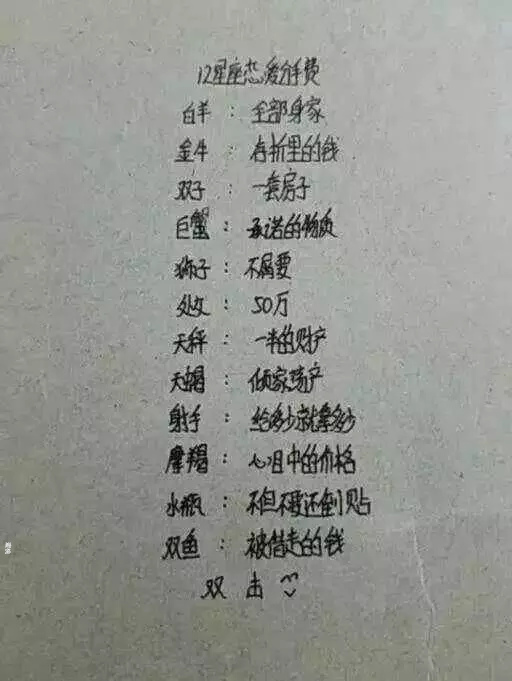 12星座恋爱分手费
白羊：全部身家
金牛：存折里的钱
双子：一套房子
巨蟹：承诺的物质
狮子：不屑要
处女：50万
天秤：一半的财产
天蝎：倾家荡产
射手：给多少就拿多少
摩羯：心目中的价格
水瓶：不但不要还倒贴
双鱼：被借走的钱
双击